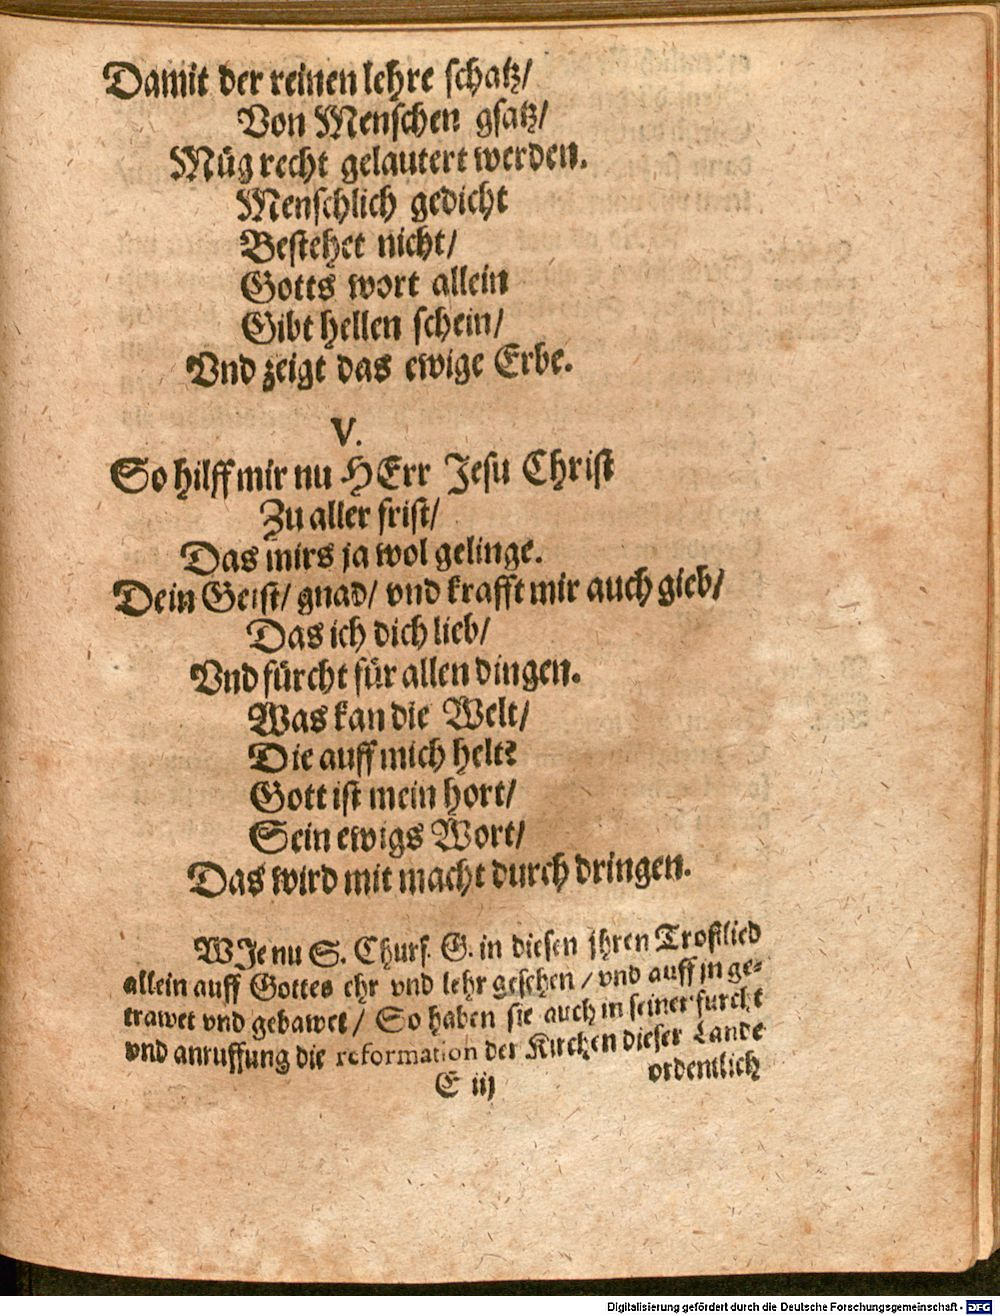 Damit der reinen lehre schatz/
Von Menschen gsatz/
Müg recht gelautert werden.
Menschlich gedicht
Bestehet nicht/
Gotts wort allein
Gibt hellen schein/
Vnd zeigt das ewige Erbe.
V.
So hilff mir nu HErr Jesu Christ
Zu aller frist/
Das mirs ja wol gelinge.
Dein Geist/ gnad/ vnd krafft mir auch gieb/
Das ich dich lieb/
Vnd fürcht für allen dingen.
Was kan die Welt/
Die auff mich helt?
Gott ist mein hort/
Sein ewigs Wort/
Das wird mit macht durch dringen.
WJe nu S. Churf. G. in diesen jhren Trostlied
allein auff Gottes ehr vnd lehr gesehen / vnd auff jn ge-
trawet vnd gebawet / So haben sie auch in seiner furcht
vnd anruffung die reformation der Kirchen dieser Lande
E iij
ordentlich
Digitalisierung gefördert durch die Deutsche Forschungsgemeinschaft - DFG